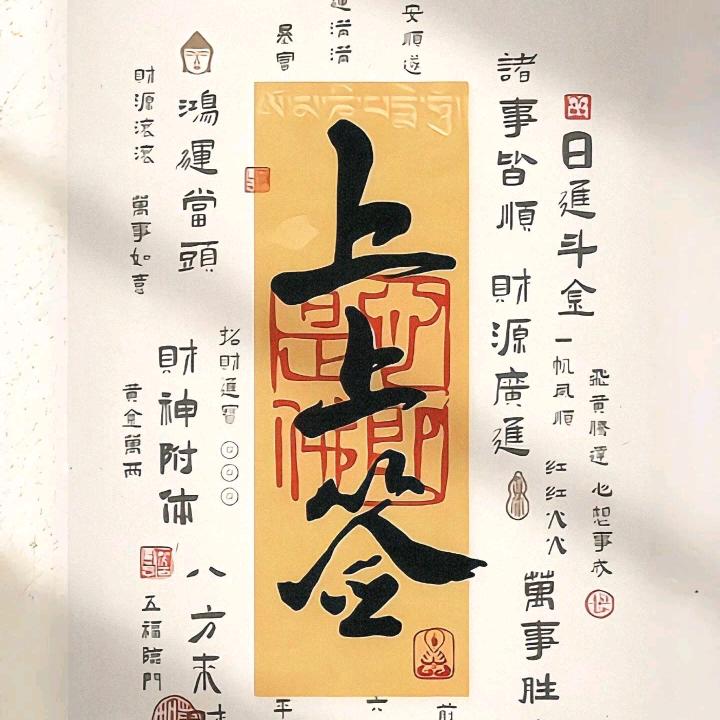 飛黃騰達
心想事成
日進斗金
一帆風順
紅紅火火
諸事皆順
財源廣進
萬事胜
安順遂
暴富
上上签
心即是佛
招財進寶
鴻運當頭
財神附体
八方来
財源滾滾
萬事如意
黃金萬兩
五福臨門
前
六
平